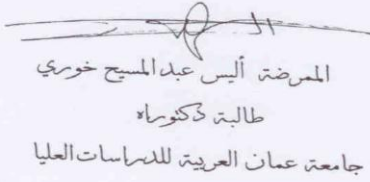 الممرضة أليس عبد المسيح خوري
طالبة دكتوراه
جامعة عمان العربية للدراسات العليا